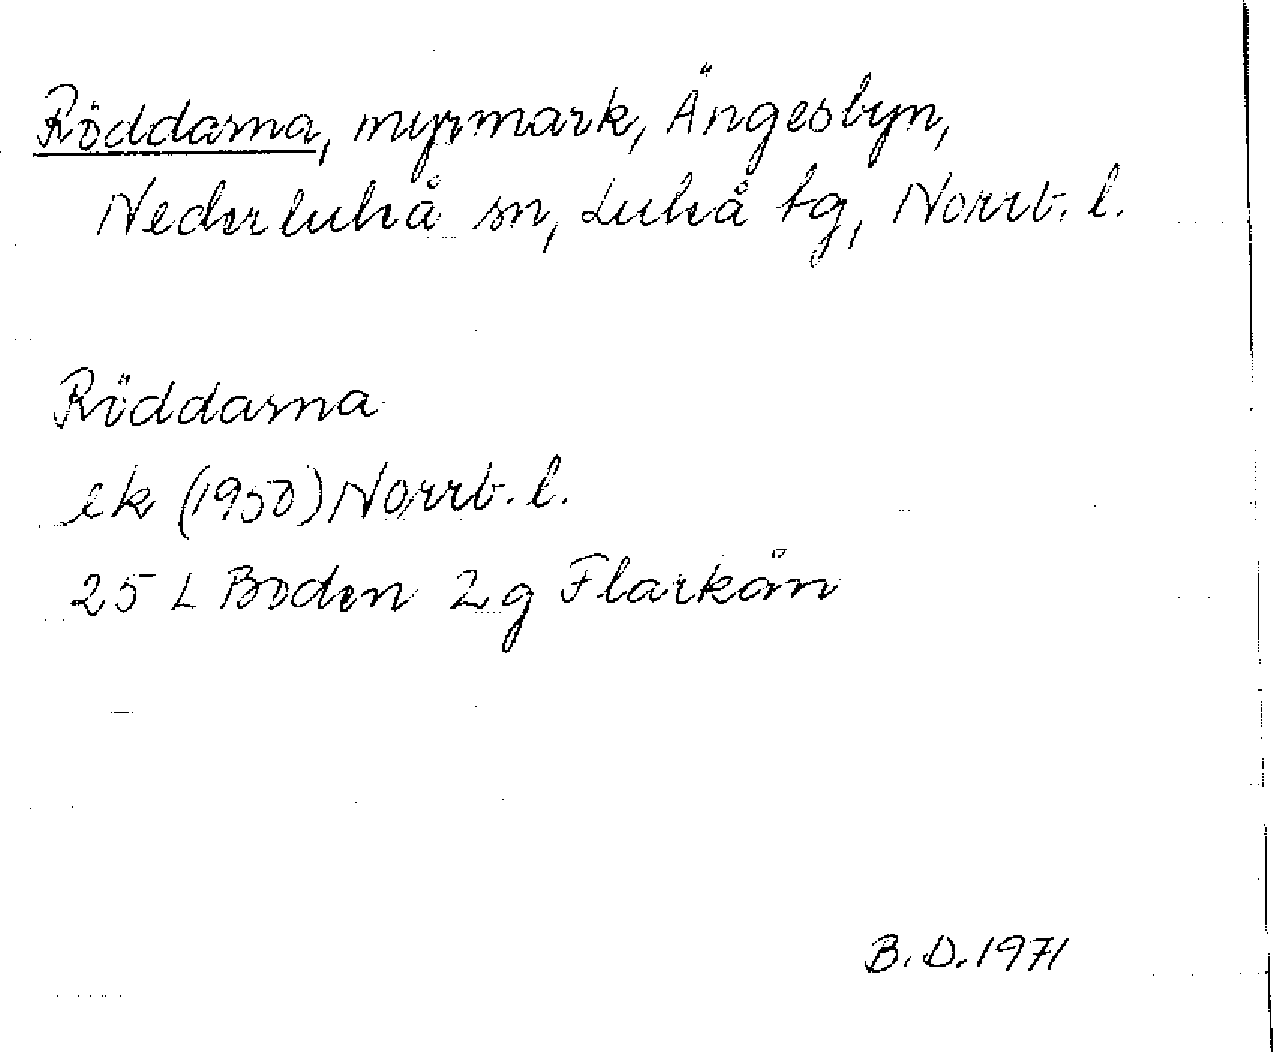 Röddarna, myrmark, Ängesbyn,
Nederluleå sn, Luleå tg, Norrb. l.
Röddarna
ek (1950) Norrb. l.
25 L Boden 2 g Flarkån
B. D. 1971